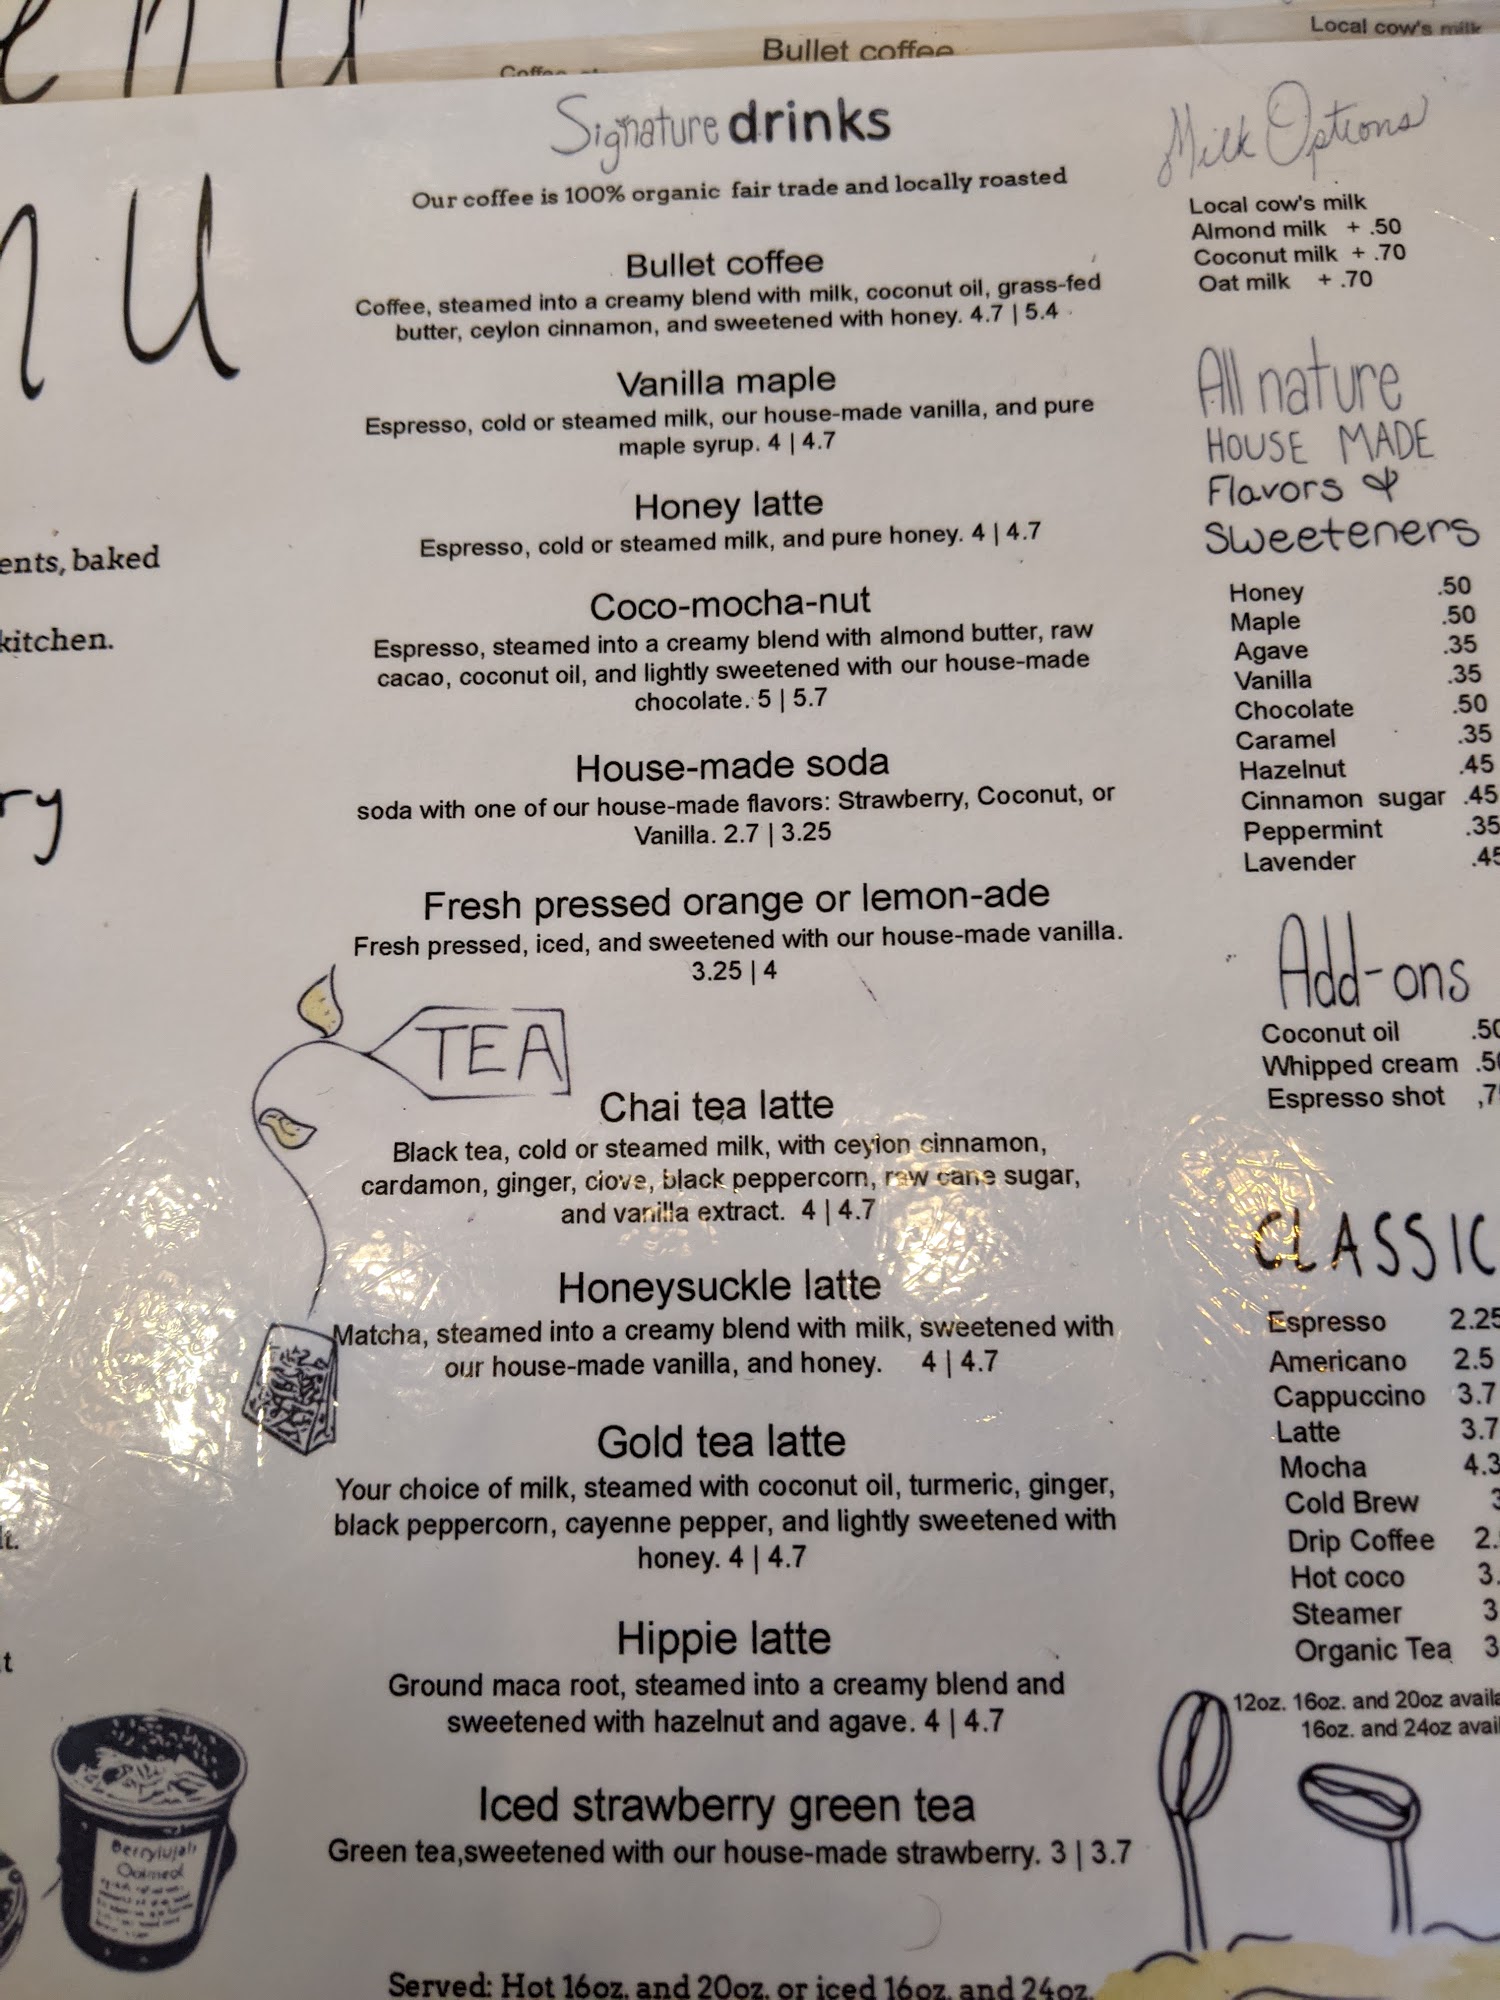 Bullet coffee
Local cow's milk
Signature drinks
Our coffee is 100% organic fair trade and locally roasted
Bullet coffee
Coffee, steamed into a creamy blend with milk, coconut oil, grass-fed
butter, ceylon cinnamon, and sweetened with honey. 4.7 | 5.4
Vanilla maple
Espresso, cold or steamed milk, our house-made vanilla, and pure
maple syrup. 4 | 4.7
Honey latte
Espresso, cold or steamed milk, and pure honey. 4 | 4.7
Coco-mocha-nut
Espresso, steamed into a creamy blend with almond butter, raw
cacao, coconut oil, and lightly sweetened with our house-made
chocolate. 5 | 5.7
House-made soda
soda with one of our house-made flavors: Strawberry, Coconut, or
Vanilla. 2.7 | 3.25
Fresh pressed orange or lemon-ade
Fresh pressed, iced, and sweetened with our house-made vanilla.
3.25 | 4
TEA
Chai tea latte
Black tea, cold or steamed milk, with ceylon cinnamon,
cardamon, ginger, clove, black peppercorn, raw cane sugar,
and vanilla extract. 4 | 4.7
Honeysuckle latte
Matcha, steamed into a creamy blend with milk, sweetened with
our house-made vanilla, and honey. 4 | 4.7
Gold tea latte
Your choice of milk, steamed with coconut oil, turmeric, ginger,
black peppercorn, cayenne pepper, and lightly sweetened with
honey. 4 | 4.7
Hippie latte
Ground maca root, steamed into a creamy blend and
sweetened with hazelnut and agave. 4 | 4.7
Iced strawberry green tea
Green tea,sweetened with our house-made strawberry. 3 | 3.7
Served: Hot 16oz. and 20oz. or iced 16oz. and 24oz.
Milk Options
Local cow's milk
Almond milk + .50
Coconut milk + .70
Oat milk + .70
All nature
HOUSE MADE
Flavors &
Sweeteners
Honey .50
Maple .50
Agave .35
Vanilla .35
Chocolate .50
Caramel .35
Hazelnut .45
Cinnamon sugar .45
Peppermint .35
Lavender .45
Add-ons
Coconut oil .50
Whipped cream .50
Espresso shot ,7
CLASSIC
Espresso 2.25
Americano 2.5
Cappuccino 3.7
Latte 3.7
Mocha 4.3
Cold Brew 3
Drip Coffee 2.
Hot coco 3.
Steamer 3
Organic Tea 3
12oz. 16oz. and 20oz availa
16oz. and 24oz avail
ents, baked
kitchen.
ry
lt.
t
Berrylujah
Oatmeal